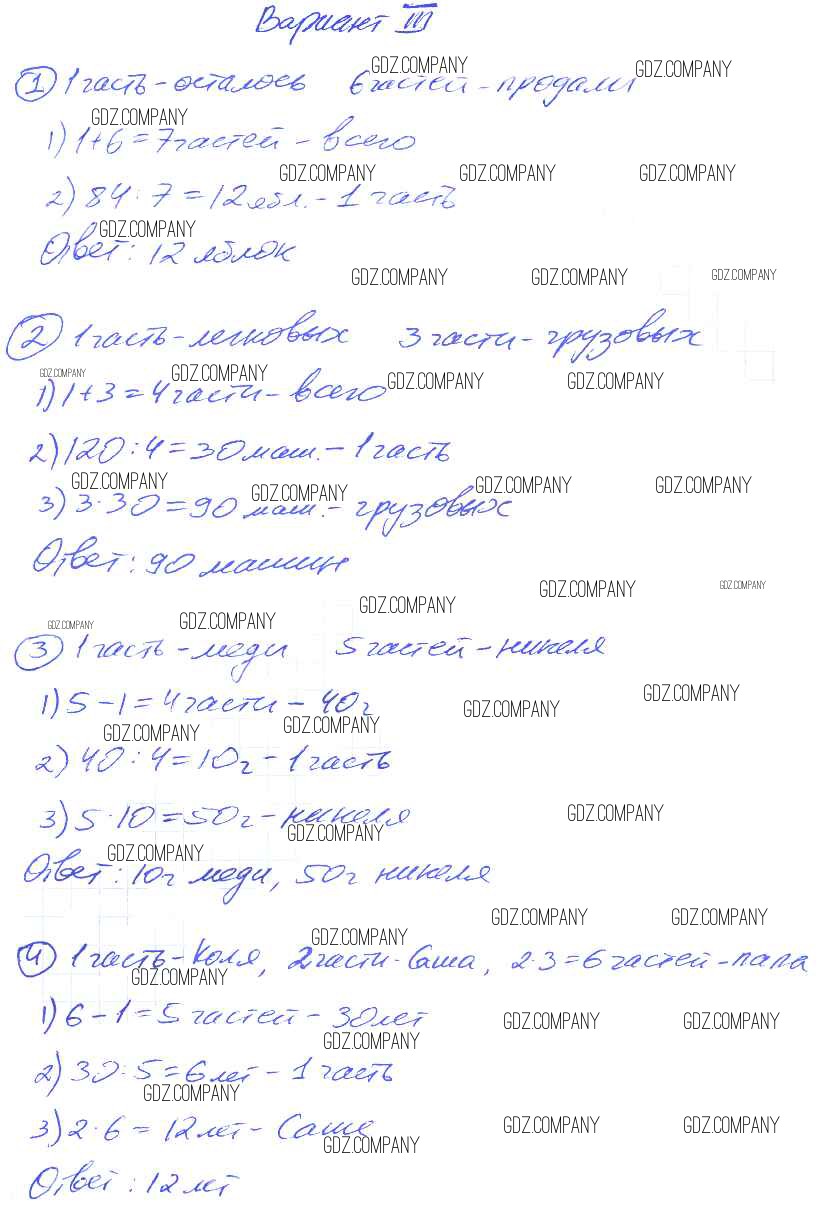 Вариант III
GDZ.COMPANY
GDZ.COMPANY
① 1 часть - осталось 6 частей - продали
GDZ.COMPANY
1) 1 + 6 = 7 частей - всего
GDZ.COMPANY GDZ.COMPANY GDZ.COMPANY
2) 84 : 7 = 12 ябл. - 1 часть
GDZ.COMPANY
Ответ: 12 яблок
GDZ.COMPANY GDZ.COMPANY GDZ.COMPANY
② 1 часть - легковых 3 части - грузовых
GDZ.COMPANY GDZ.COMPANY GDZ.COMPANY GDZ.COMPANY
1) 1 + 3 = 4 части - всего
2) 120 : 4 = 30 маш. - 1 часть
GDZ.COMPANY GDZ.COMPANY GDZ.COMPANY GDZ.COMPANY
3) 3 · 30 = 90 маш. - грузовых
Ответ: 90 машин
GDZ.COMPANY GDZ.COMPANY
GDZ.COMPANY GDZ.COMPANY GDZ.COMPANY
③ 1 часть - меди 5 частей - никеля
1) 5 - 1 = 4 части - 40 г
GDZ.COMPANY GDZ.COMPANY
GDZ.COMPANY GDZ.COMPANY
2) 40 : 4 = 10 г - 1 часть
3) 5 · 10 = 50 г - никеля
GDZ.COMPANY GDZ.COMPANY
GDZ.COMPANY
Ответ: 10 г меди, 50 г никеля
GDZ.COMPANY GDZ.COMPANY
GDZ.COMPANY
④ 1 часть - Коля, 2 части - Саша, 2 · 3 = 6 частей - папа
GDZ.COMPANY
1) 6 - 1 = 5 частей - 30 лет
GDZ.COMPANY GDZ.COMPANY
GDZ.COMPANY
2) 30 : 5 = 6 лет - 1 часть
GDZ.COMPANY
3) 2 · 6 = 12 лет - Саше
GDZ.COMPANY GDZ.COMPANY
GDZ.COMPANY
Ответ: 12 лет